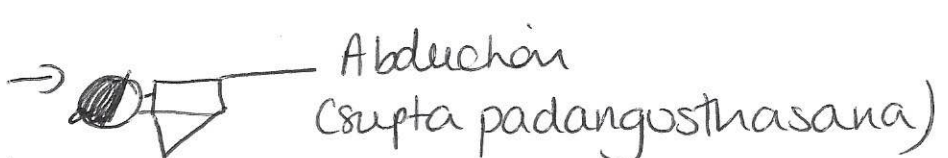 → Abduction
(supta padangusthasana)